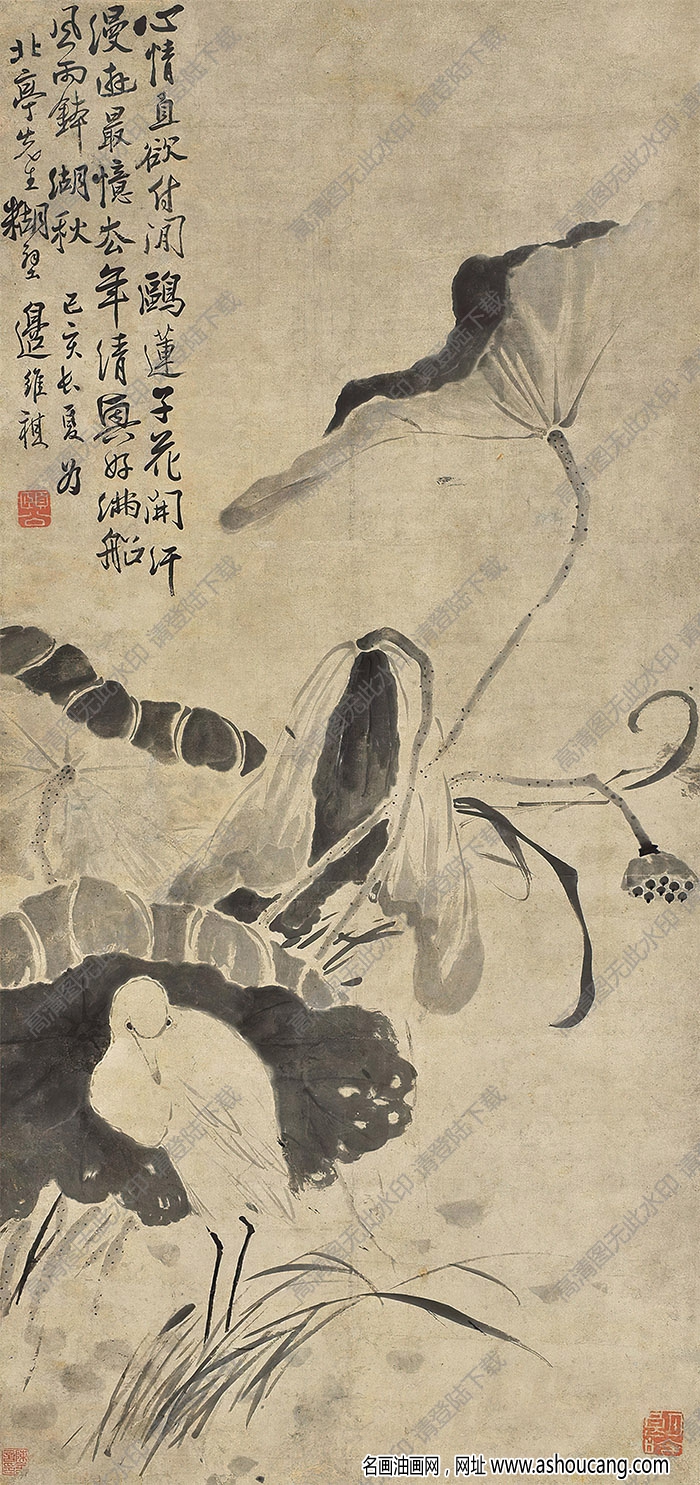 心情直欲付閒鷗蓮子花開汗
漫遊最憶去年清興好滿船
風雨鉢湖秋 己亥長夏為
北亭先生糊壁 邊維祺
高清图无此水印 请登陆下载
名画油画网，网址 www.ashoucang.com